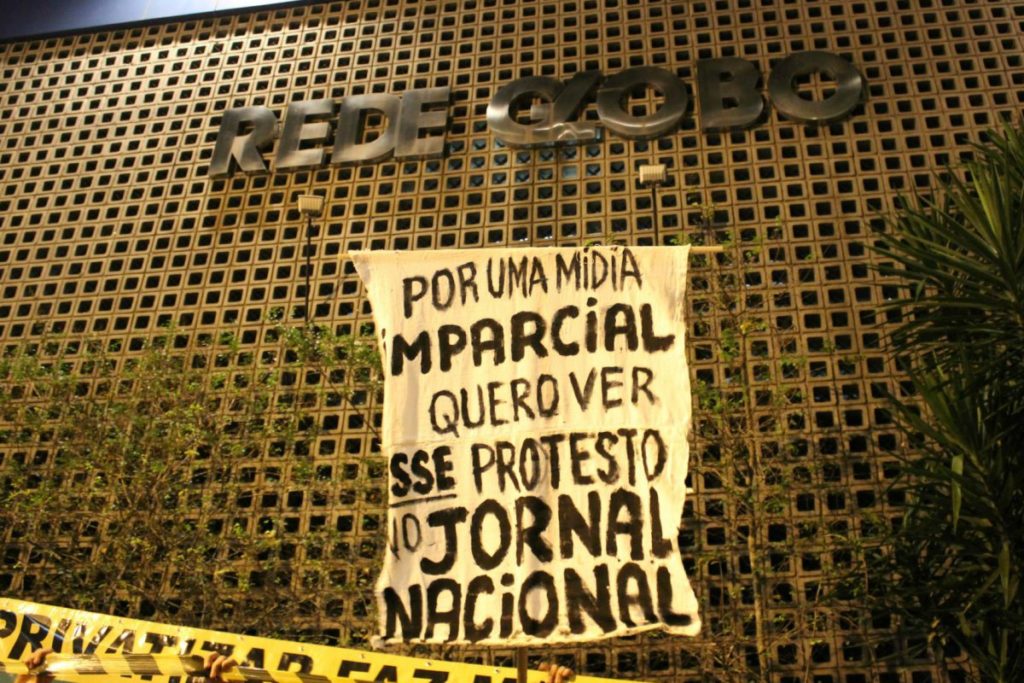 REDE GLOBO
POR UMA MÍDIA
iMPARCiAL
QUERO VER
SSE PROTESTO
NO JORNAL
NACiONAL
PRIVATIZAR FAZ M